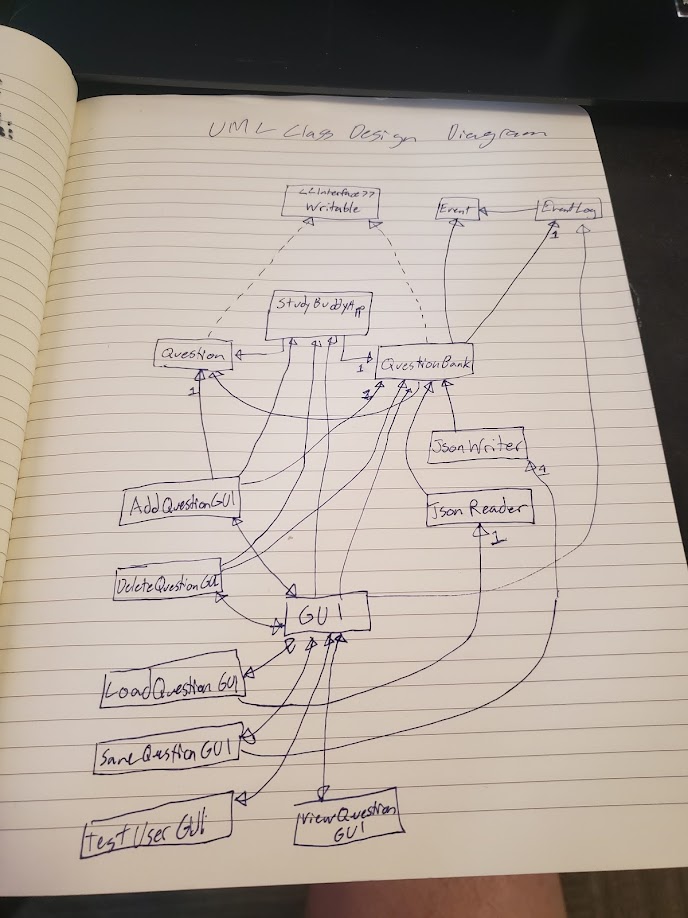 UML Class Design Diagram
<<Interface>>
Writable
Event
EventLog
StudyBuddyApp
Question
1
QuestionBank
1
1
JsonWriter
1
AddQuestionGUI
JsonReader
1
DeleteQuestionGUI
GUI
LoadQuestionGUI
SaveQuestionGUI
TestUserGUI
ViewQuestion
GUI